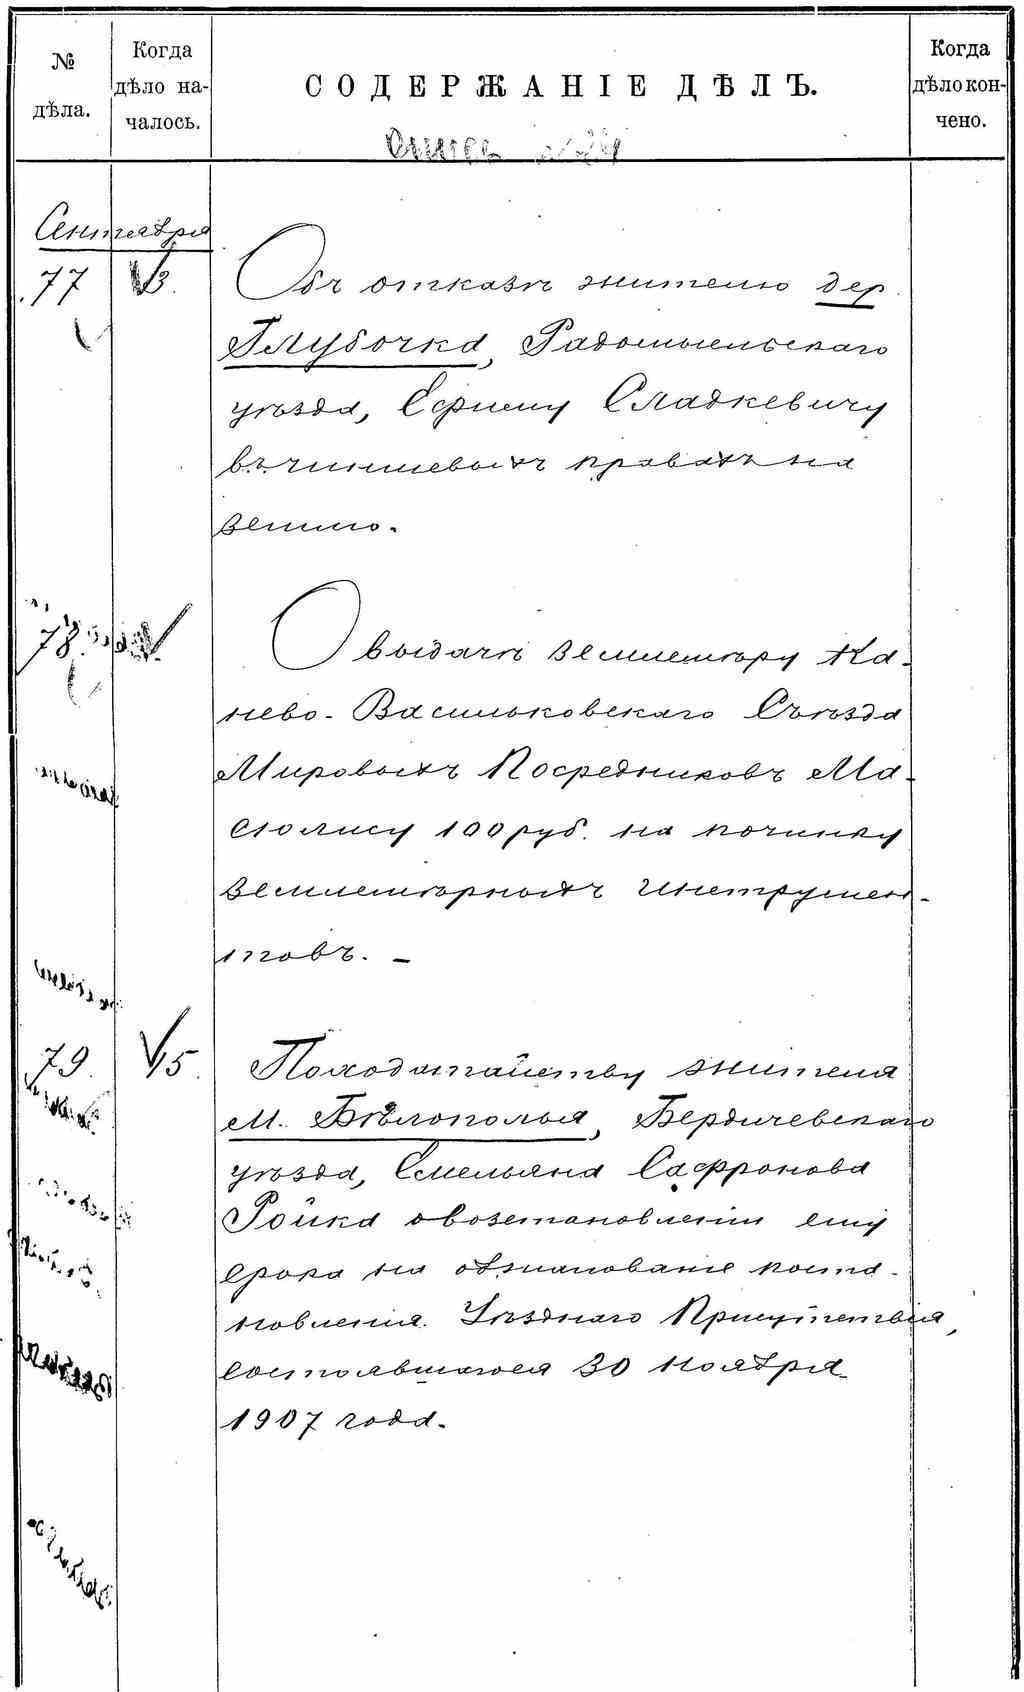 № дѣла.
Когда дѣло на-
чалось.
СОДЕРЖАНІЕ ДѢЛЪ.
Когда дѣло кон-
чено.
Опись
Сентября
77
3.
Объ отказѣ жителю дер.
Глубочка, Радомысльскаго
уѣзда, Ефиму Сладкевичу
въ чиншевыхъ правахъ на
землю.
78.
О выдачѣ землемѣру Ка-
нево-Васильковскаго Съѣзда
Мировыхъ Посредниковъ Ма-
сюлису 100 руб. на починку
землемѣрныхъ инструмен-
товъ. –
79.
15.
По ходатайству жителя
м. Бѣлополья, Бердичевскаго
уѣзда, Емельяна Сафронова
Ройка о возстановленіи ему
срока на обжалованіе поста-
новленія Уѣзднаго Присутствія,
состоявшагося 30 Ноября
1907 года.